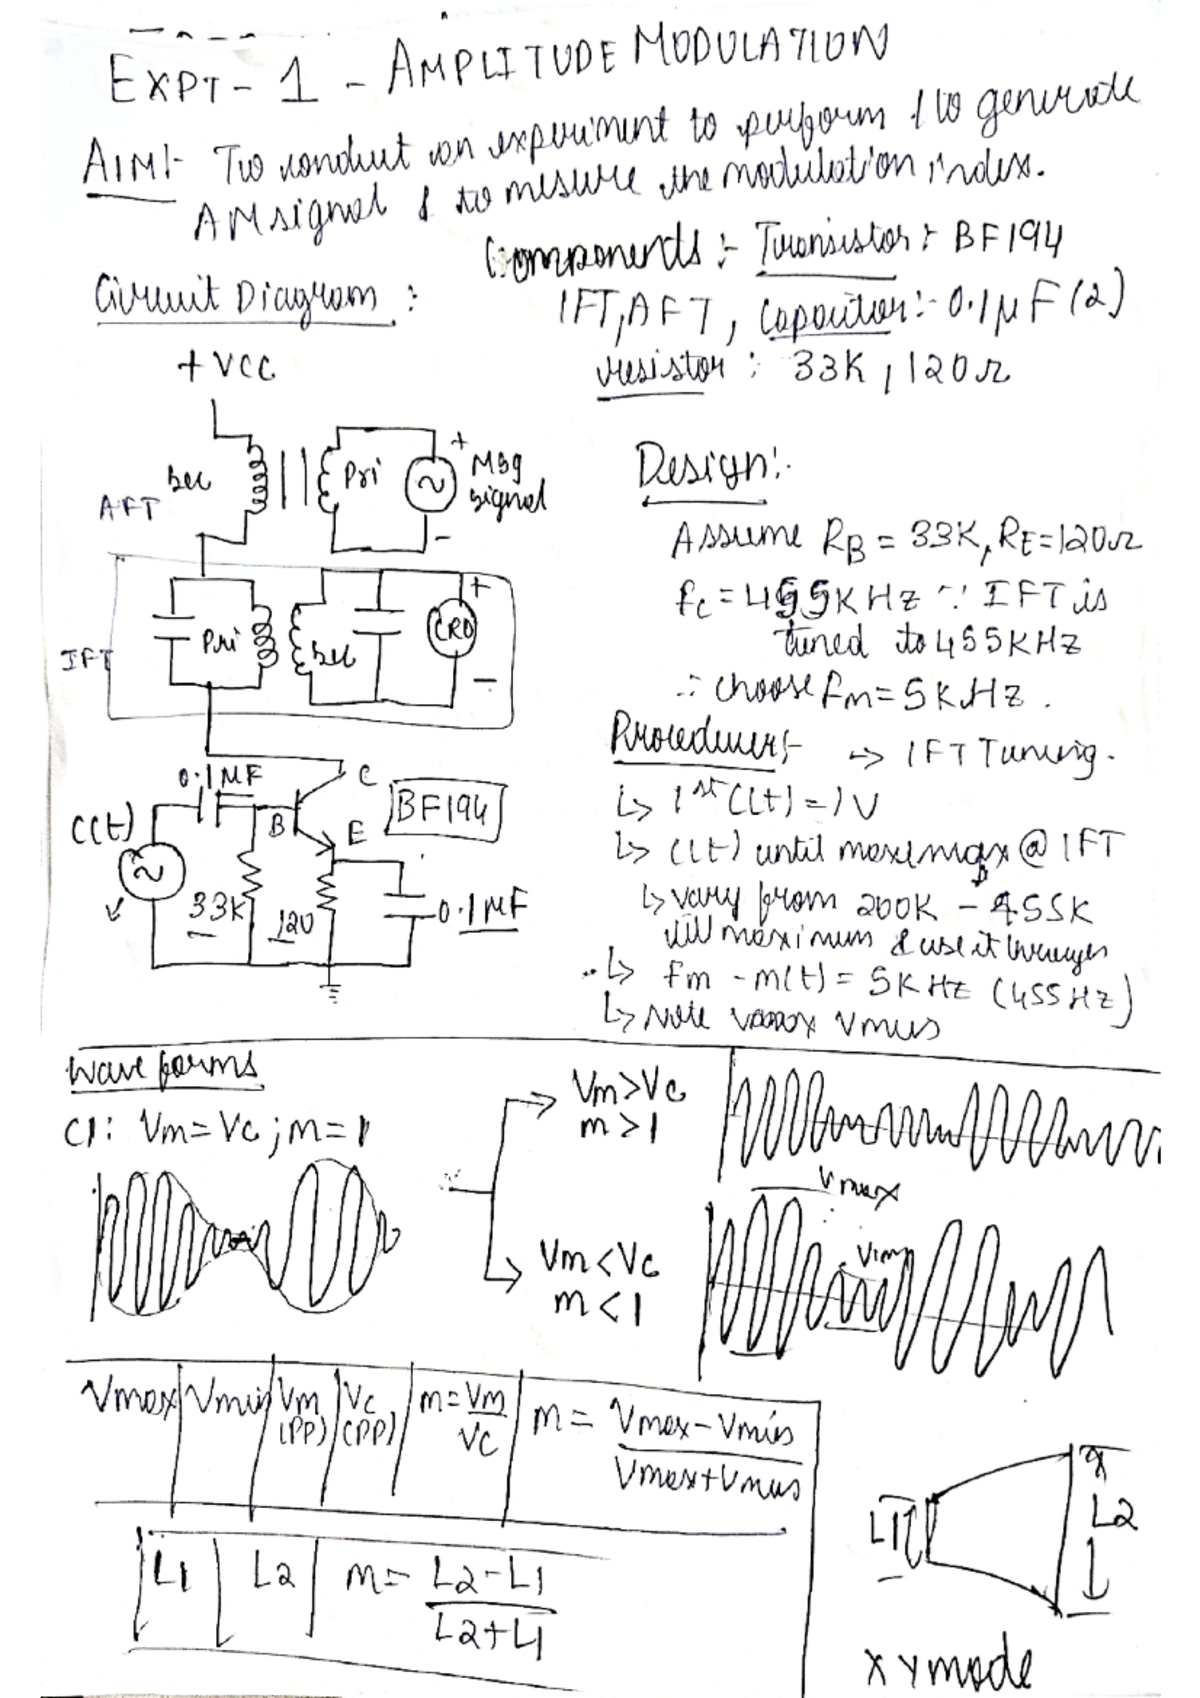 EXPT - 1 - AMPLITUDE MODULATION
AIM:- To conduct an experiment to perform & to generate
AM signal & to mesure the modulation index.
Components :- Transistor :- BF194
Circuit Diagram :
IFT, AFT, Capacitor :- 0.1μF (2)
resistor : 33K, 120Ω
+VCC
AFT
Sec
Pri
+
Msg
signal
-
Design :-
Assume RB = 33K, RE = 120Ω
fc = 455KHz ∵ IFT is
tuned to 455KHz
∴ choose fm = 5KHz.
IFT
Pri
Sec
CRO
+
-
Procedure :- → IFT Tuning.
↳ 1st C(t) = 1V
↳ C(t) until max @ IFT
↳ vary from 200K - 455K
till maximum & use it
↳ fm - m(t) = 5KHz (455Hz)
↳ Note vmax vmin
0.1MF
C
C(t)
B
E
BF194
33K
120
0.1MF
Wave forms
C1: Vm = Vc ; m = 1
Vm > Vc
m > 1
Vmax
Vmin
Vm < Vc
m < 1
Vmax Vmin Vm (PP) Vc (PP) m = Vm/Vc m = Vmax - Vmin / Vmax + Vmin
L1 L2 m = L2 - L1 / L2 + L1
L1
L2
XY mode